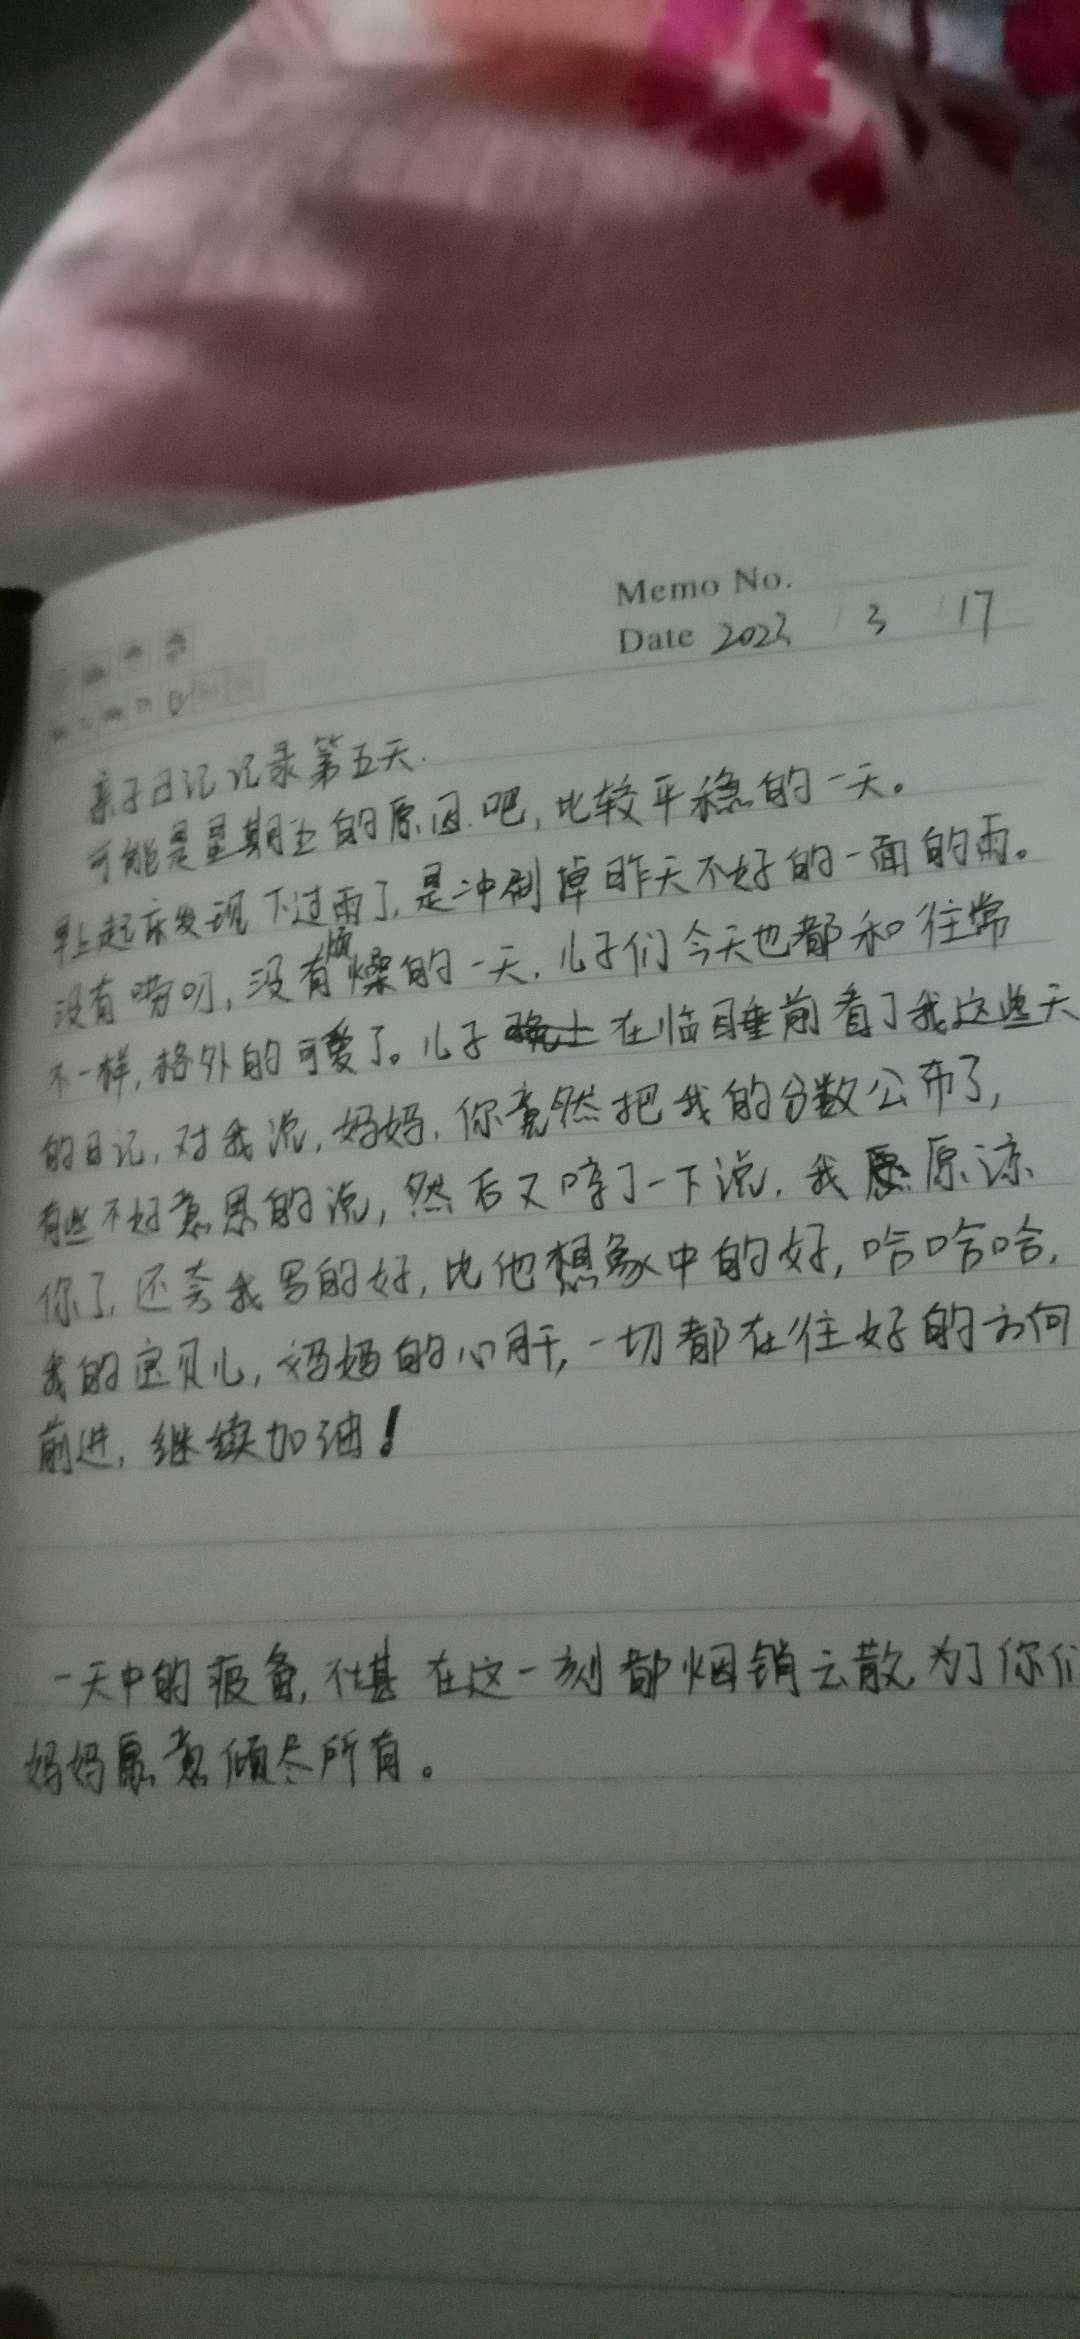 Memo No.
Date 2023 / 3 / 17
亲子日记记录第五天.
可能是星期五的原因吧,比较平稳的一天。
早上起床发现下过雨了,是冲刷掉昨天不好的一面的雨。
没有唠叨,没有烦燥的一天,儿子们今天也都和往常
不一样,格外的可爱了。儿子晚上在临睡前看了我这些天
的日记,对我说,妈妈,你竟然把我的分数公布了,
有些不好意思的说,然后又哼了一下说,我愿原谅
你了,还夸我写的好,比他想象中的好,哈哈哈,
我的宝贝儿,妈妈的心肝,一切都在往好的方向
前进,继续加油!
一天中的疲备,不堪在这一刻都烟销云散,为了你们
妈妈愿意倾尽所有。